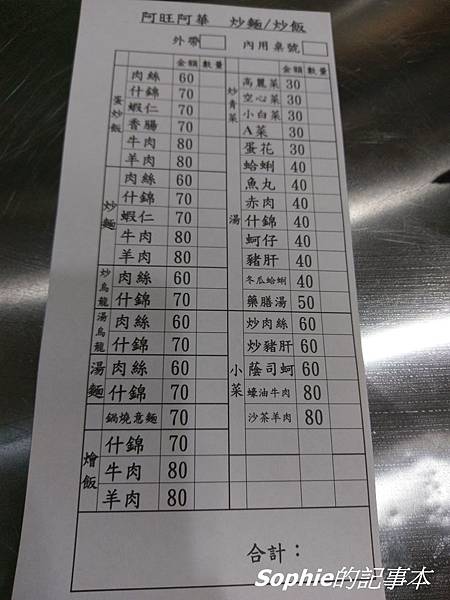 阿旺阿華 炒麵/炒飯
外帶 內用桌號
金額 數量
蛋炒飯
肉絲 60
什錦 70
蝦仁 70
香腸 70
牛肉 80
羊肉 80
炒麵
肉絲 60
什錦 70
蝦仁 70
牛肉 80
羊肉 80
炒烏龍
肉絲 60
什錦 70
湯烏龍
肉絲 60
什錦 70
湯麵
肉絲 60
什錦 70
鍋燒意麵 70
燴飯
什錦 70
牛肉 80
羊肉 80
金額 數量
炒青菜
高麗菜 30
空心菜 30
小白菜 30
A菜 30
湯
蛋花 30
蛤蜊 40
魚丸 40
赤肉 40
什錦 40
蚵仔 40
豬肝 40
冬瓜蛤蜊 40
藥膳湯 50
小菜
炒肉絲 60
炒豬肝 60
蔭司蚵 60
蠔油牛肉 80
沙茶羊肉 80
合計：
Sophie的記事本